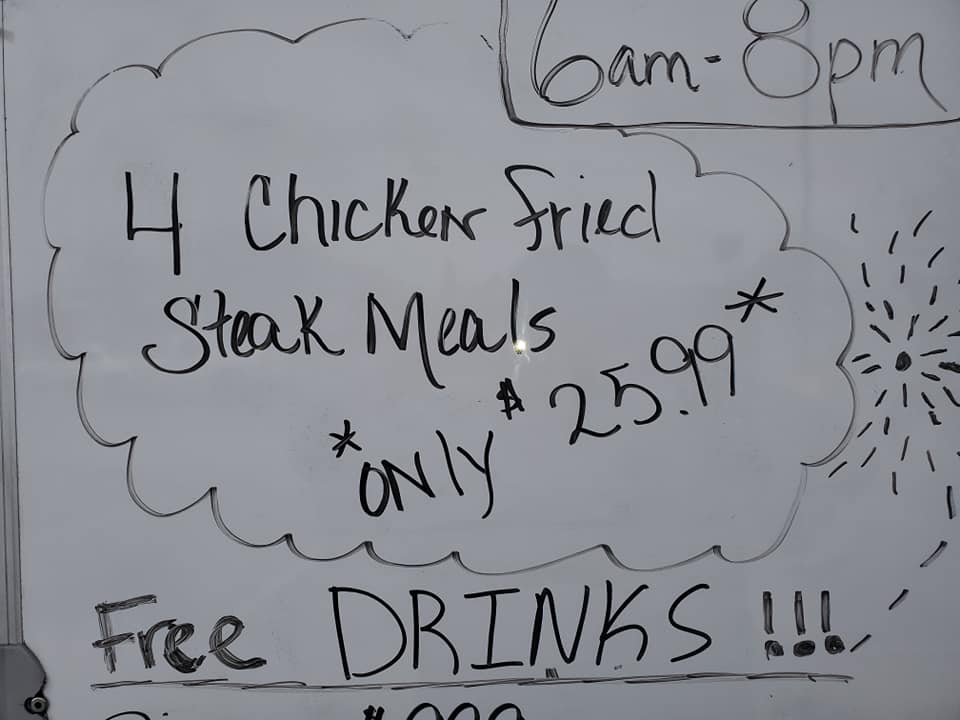 6am-8pm
4 Chicken fried
Steak Meals
*ONLY $25.99*
Free DRINKS !!!